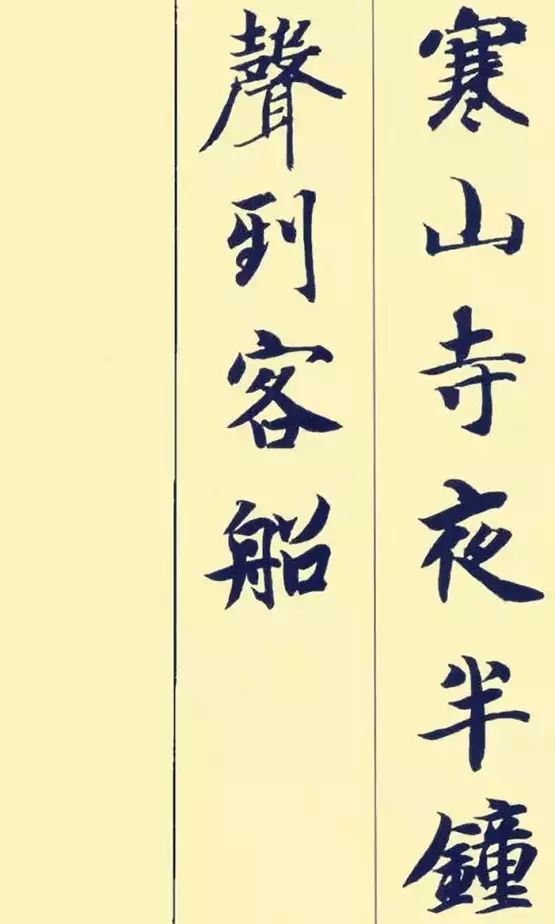 寒山寺夜半鐘
聲到客船